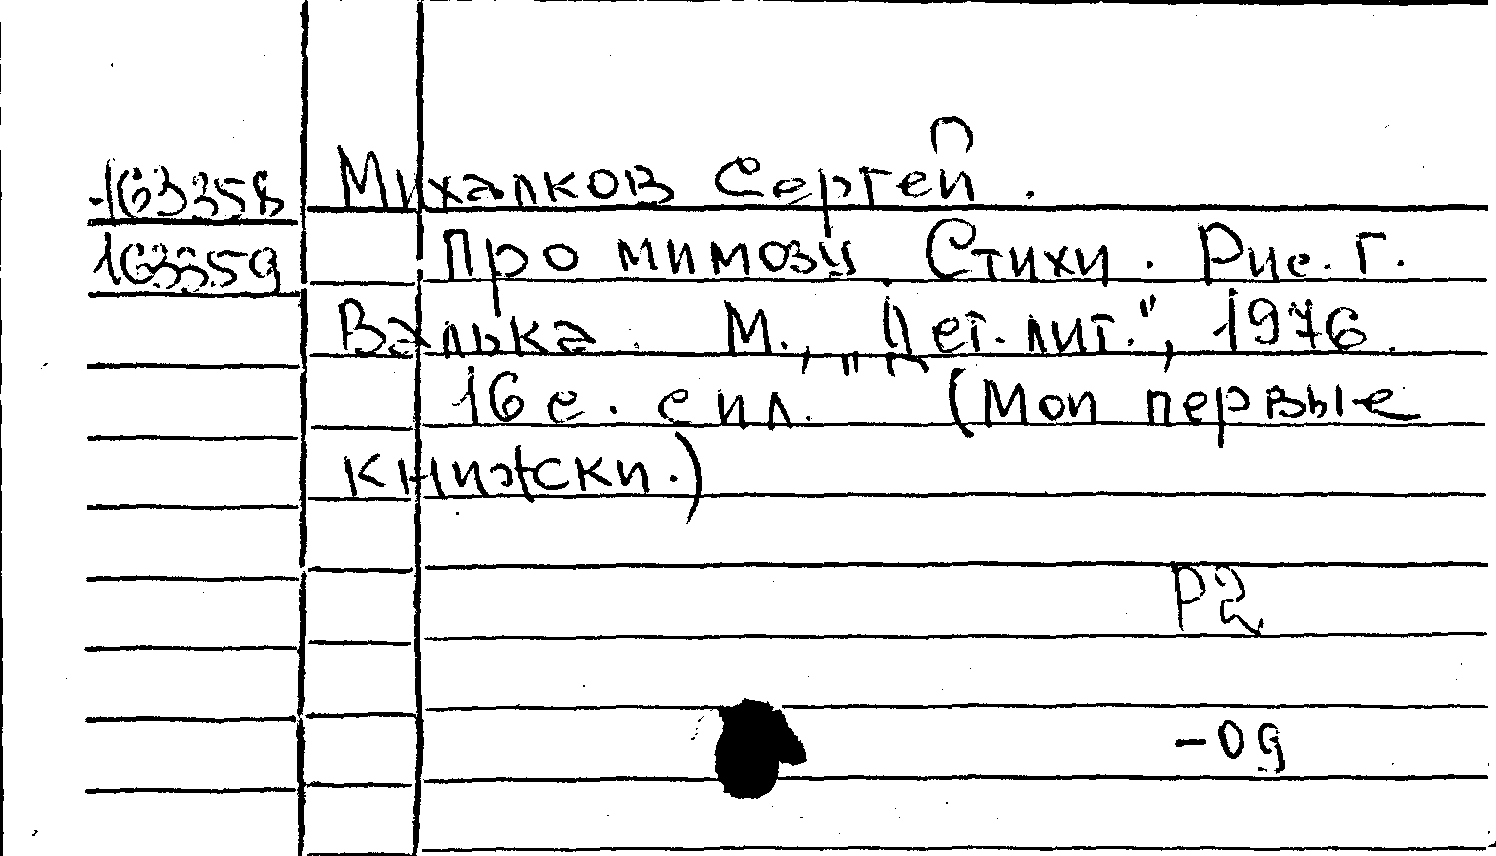 163358 Михалков Сергей.
163359 Про мимозу Стихи. Рис. Г.
Валька. М., "Дет. лит.", 1976.
16 с. с ил. (Мои первые
книжки.)
Р2
-09